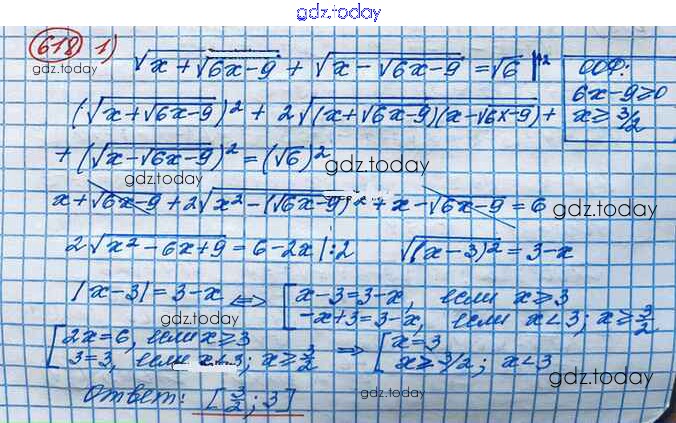 gdz.today
618 1) √(x+√(6x-9)) + √(x-√(6x-9)) = √6 |²
ООФ:
6x-9≥0
x≥3/2
gdz.today
gdz.today
(√(x+√(6x-9)))² + 2√((x+√(6x-9))(x-√(6x-9))) +
+ (√(x-√(6x-9)))² = (√6)²
gdz.today
gdz.today
x+√(6x-9)+2√(x²-(√(6x-9))²)+x-√(6x-9)=6
gdz.today
2√(x²-6x+9)=6-2x|:2 √((x-3)²)=3-x
gdz.today
|x-3|=3-x ⇔ [x-3=3-x, если x≥3
-x+3=3-x, если x<3; x≥3/2
gdz.today
[2x=6, если x≥3
3=3, если x<3; x≥3/2 ⇒ [x=3
x≥3/2; x<3
gdz.today
gdz.today
Ответ: [3/2; 3]
gdz.today